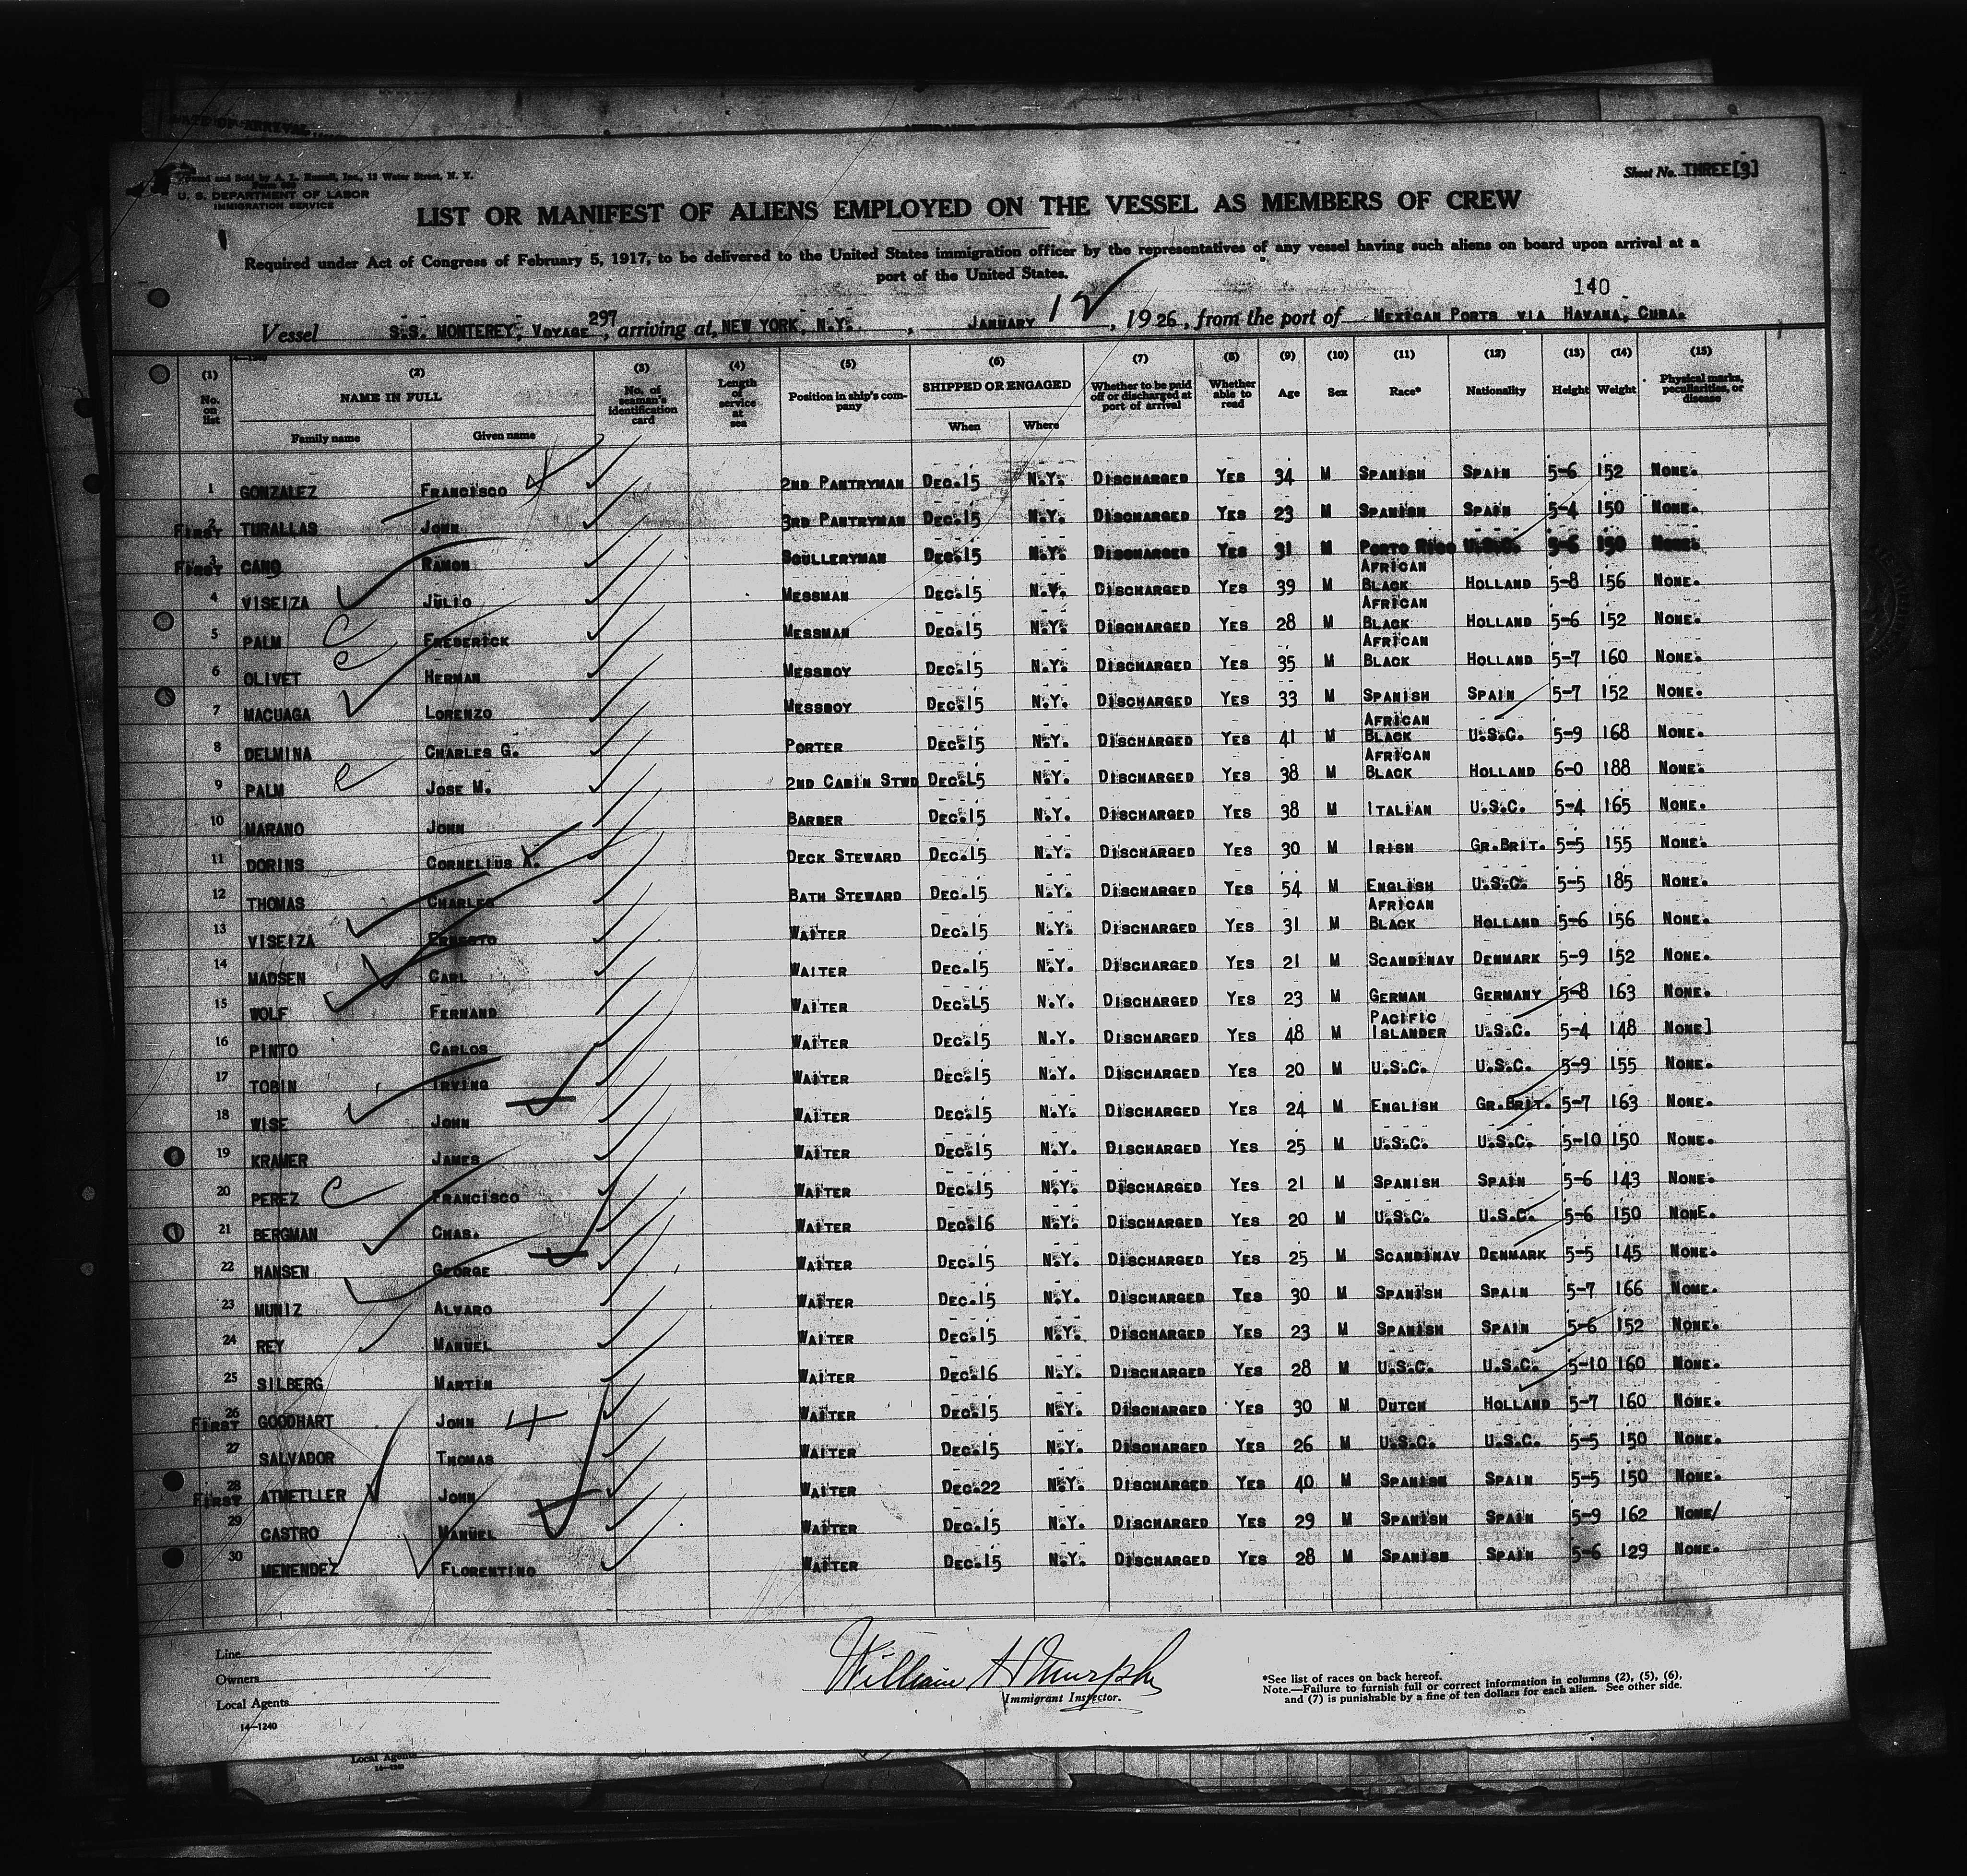 Sheet No. THREE[3]
Printed and Sold by A. L. Russell, Inc., 12 Water Street, N. Y.
U. S. DEPARTMENT OF LABOR
IMMIGRATION SERVICE
LIST OR MANIFEST OF ALIENS EMPLOYED ON THE VESSEL AS MEMBERS OF CREW
Required under Act of Congress of February 5, 1917, to be delivered to the United States immigration officer by the representatives of any vessel having such aliens on board upon arrival at a
port of the United States.
140
Vessel S.S. MONTEREY, VOYAGE 297, arriving at NEW YORK, N.Y., JANUARY 12, 1926, from the port of MEXICAN PORTS VIA HAVANA, CUBA.
14-1240
(1) No. on list (2) NAME IN FULL Family name Given name (3) No. of seaman's identification card (4) Length of service at sea (5) Position in ship's company (6) SHIPPED OR ENGAGED When Where (7) Whether to be paid off or discharged at port of arrival (8) Whether able to read (9) Age (10) Sex (11) Race* (12) Nationality (13) Height (14) Weight (15) Physical marks, peculiarities, or disease
1 GONZALEZ FRANCISCO 2ND PANTRYMAN DEC.15 N.Y. DISCHARGED YES 34 M SPANISH SPAIN 5-6 152 NONE.
2 FIRST TURALLAS JOHN 3RD PANTRYMAN DEC.15 N.Y. DISCHARGED YES 23 M SPANISH SPAIN 5-4 150 NONE.
3 FIRST CANO RAMON SCULLERYMAN DEC.15 N.Y. DISCHARGED YES 31 M PORTO RICO U.S.C. 5-6 150 NONE.
4 VISEIZA JULIO MESSMAN DEC.15 N.Y. DISCHARGED YES 39 M AFRICAN BLACK HOLLAND 5-8 156 NONE.
5 PALM FREDERICK MESSMAN DEC.15 N.Y. DISCHARGED YES 28 M AFRICAN BLACK HOLLAND 5-6 152 NONE.
6 OLIVET HERMAN MESSBOY DEC.15 N.Y. DISCHARGED YES 35 M AFRICAN BLACK HOLLAND 5-7 160 NONE.
7 MACUAGA LORENZO MESSBOY DEC.15 N.Y. DISCHARGED YES 33 M SPANISH SPAIN 5-7 152 NONE.
8 DELMINA CHARLES G. PORTER DEC.15 N.Y. DISCHARGED YES 41 M AFRICAN BLACK U.S.C. 5-9 168 NONE.
9 PALM JOSE M. 2ND CABIN STWD DEC.L5 N.Y. DISCHARGED YES 38 M AFRICAN BLACK HOLLAND 6-0 188 NONE.
10 MARANO JOHN BARBER DEC.15 N.Y. DISCHARGED YES 38 M ITALIAN U.S.C. 5-4 165 NONE.
11 DORINS CORNELIUS K. DECK STEWARD DEC.15 N.Y. DISCHARGED YES 30 M IRISH GR.BRIT. 5-5 155 NONE.
12 THOMAS CHARLES BATH STEWARD DEC.15 N.Y. DISCHARGED YES 54 M ENGLISH U.S.C. 5-5 185 NONE.
13 VISEIZA ERNESTO WAITER DEC.15 N.Y. DISCHARGED YES 31 M AFRICAN BLACK HOLLAND 5-6 156 NONE.
14 MADSEN CARL WAITER DEC.15 N.Y. DISCHARGED YES 21 M SCANDINAV DENMARK 5-9 152 NONE.
15 WOLF FERNAND WAITER DEC.L5 N.Y. DISCHARGED YES 23 M GERMAN GERMANY 5-8 163 NONE.
16 PINTO CARLOS WAITER DEC.15 N.Y. DISCHARGED YES 48 M PACIFIC ISLANDER U.S.C. 5-4 148 NONE]
17 TOBIN IRVING WAITER DEC.15 N.Y. DISCHARGED YES 20 M U.S.C. U.S.C. 5-9 155 NONE.
18 WISE JOHN WAITER DEC.15 N.Y. DISCHARGED YES 24 M ENGLISH GR.BRIT. 5-7 163 NONE.
19 KRAMER JAMES WAITER DEC.15 N.Y. DISCHARGED YES 25 M U.S.C. U.S.C. 5-10 150 NONE.
20 PEREZ FRANCISCO WAITER DEC.15 N.Y. DISCHARGED YES 21 M SPANISH SPAIN 5-6 143 NONE.
21 BERGMAN CHAS. WAITER DEC.16 N.Y. DISCHARGED YES 20 M U.S.C. U.S.C. 5-6 150 NONE.
22 HANSEN GEORGE WAITER DEC.15 N.Y. DISCHARGED YES 25 M SCANDINAV DENMARK 5-5 145 NONE.
23 MUNIZ ALVARO WAITER DEC.15 N.Y. DISCHARGED YES 30 M SPANISH SPAIN 5-7 166 NONE.
24 REY MANUEL WAITER DEC.15 N.Y. DISCHARGED YES 23 M SPANISH SPAIN 5-6 152 NONE.
25 SILBERG MARTIN WAITER DEC.16 N.Y. DISCHARGED YES 28 M U.S.C. U.S.C. 5-10 160 NONE.
26 FIRST GOODHART JOHN WAITER DEC.15 N.Y. DISCHARGED YES 30 M DUTCH HOLLAND 5-7 160 NONE.
27 SALVADOR THOMAS WAITER DEC.15 N.Y. DISCHARGED YES 26 M U.S.C. U.S.C. 5-5 150 NONE.
28 FIRST ATMETLLER JOHN WAITER DEC.22 N.Y. DISCHARGED YES 40 M SPANISH SPAIN 5-5 150 NONE.
29 CASTRO MANUEL WAITER DEC.15 N.Y. DISCHARGED YES 29 M SPANISH SPAIN 5-9 162 NONE/
30 MENENDEZ FLORENTINO WAITER DEC.15 N.Y. DISCHARGED YES 28 M SPANISH SPAIN 5-6 129 NONE.
Line
Owners
Local Agents
14-1240
William H Murphy
Immigrant Inspector.
*See list of races on back hereof.
Note.—Failure to furnish full or correct information in columns (2), (5), (6),
and (7) is punishable by a fine of ten dollars for each alien. See other side.
Local Agents
14-1240